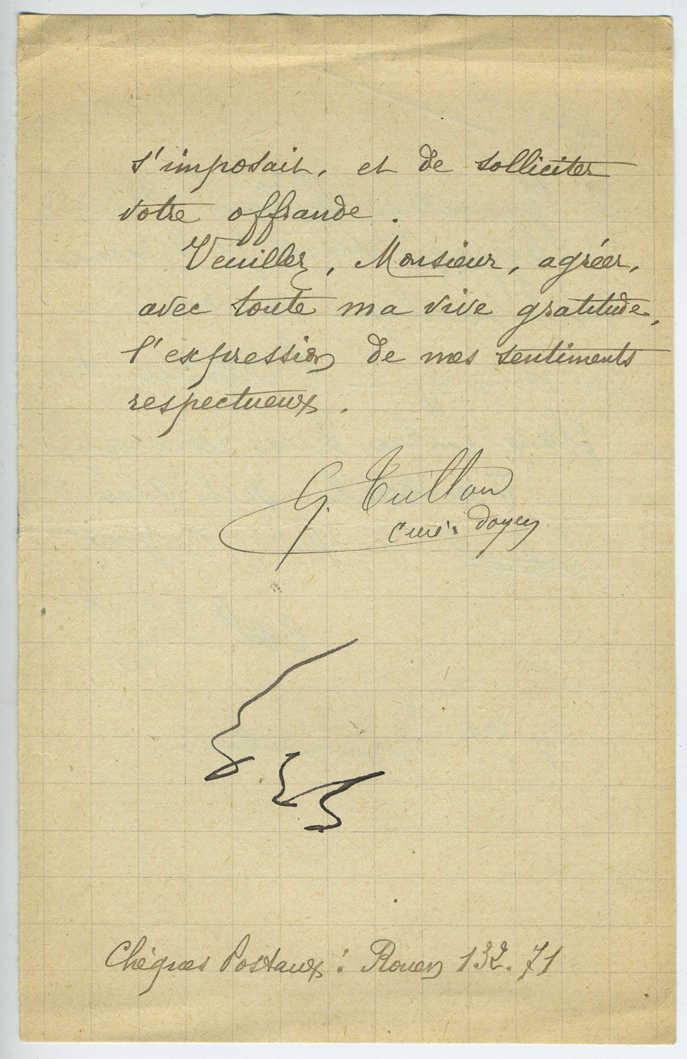 s'imposait, et de solliciter
votre offrande.
Veuillez, Monsieur, agréer,
avec toute ma vive gratitude,
l'expression de mes sentiments
respectueux.
G.
curé doyen
Chèques Postaux : Rouen 132.71